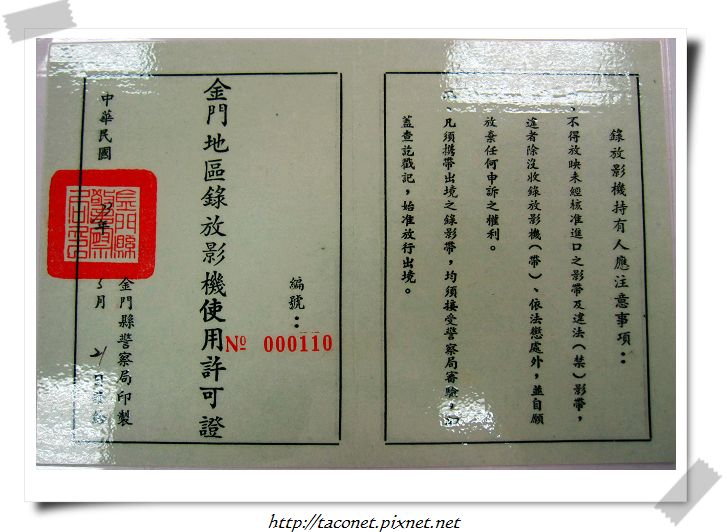 錄放影機持有人應注意事項：
、不得放映未經核准進口之影帶及違法（禁）影帶，
違者除沒收錄放影機（帶）、依法懲處外，並自願
放棄任何申訴之權利。
、凡須攜帶出境之錄影帶，均須接受警察局審驗，
蓋查訖戳記，始准放行出境。
編號：
№ 000110
金門地區錄放影機使用許可證
金門縣警察局印製
中華民國
年
5月
21日
http://taconet.pixnet.net